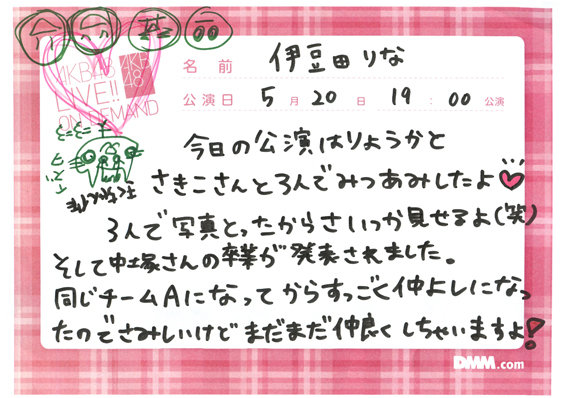 AKB48
LIVE!!
ON DEMAND
AKB
48
名前 伊豆田りな
公演日 5月20日 19:00公演
今日の公演はりょうかと
さきこさんと3人でみつあみしたよ
3人で写真とったからさいっか見せるよ(笑)
そして中塚さんの卒業が発表されました。
同じチームAになってからすっごく仲よしになっ
たのでさみしいけどまだまだ仲良くしちゃいますよ!
DMM.com